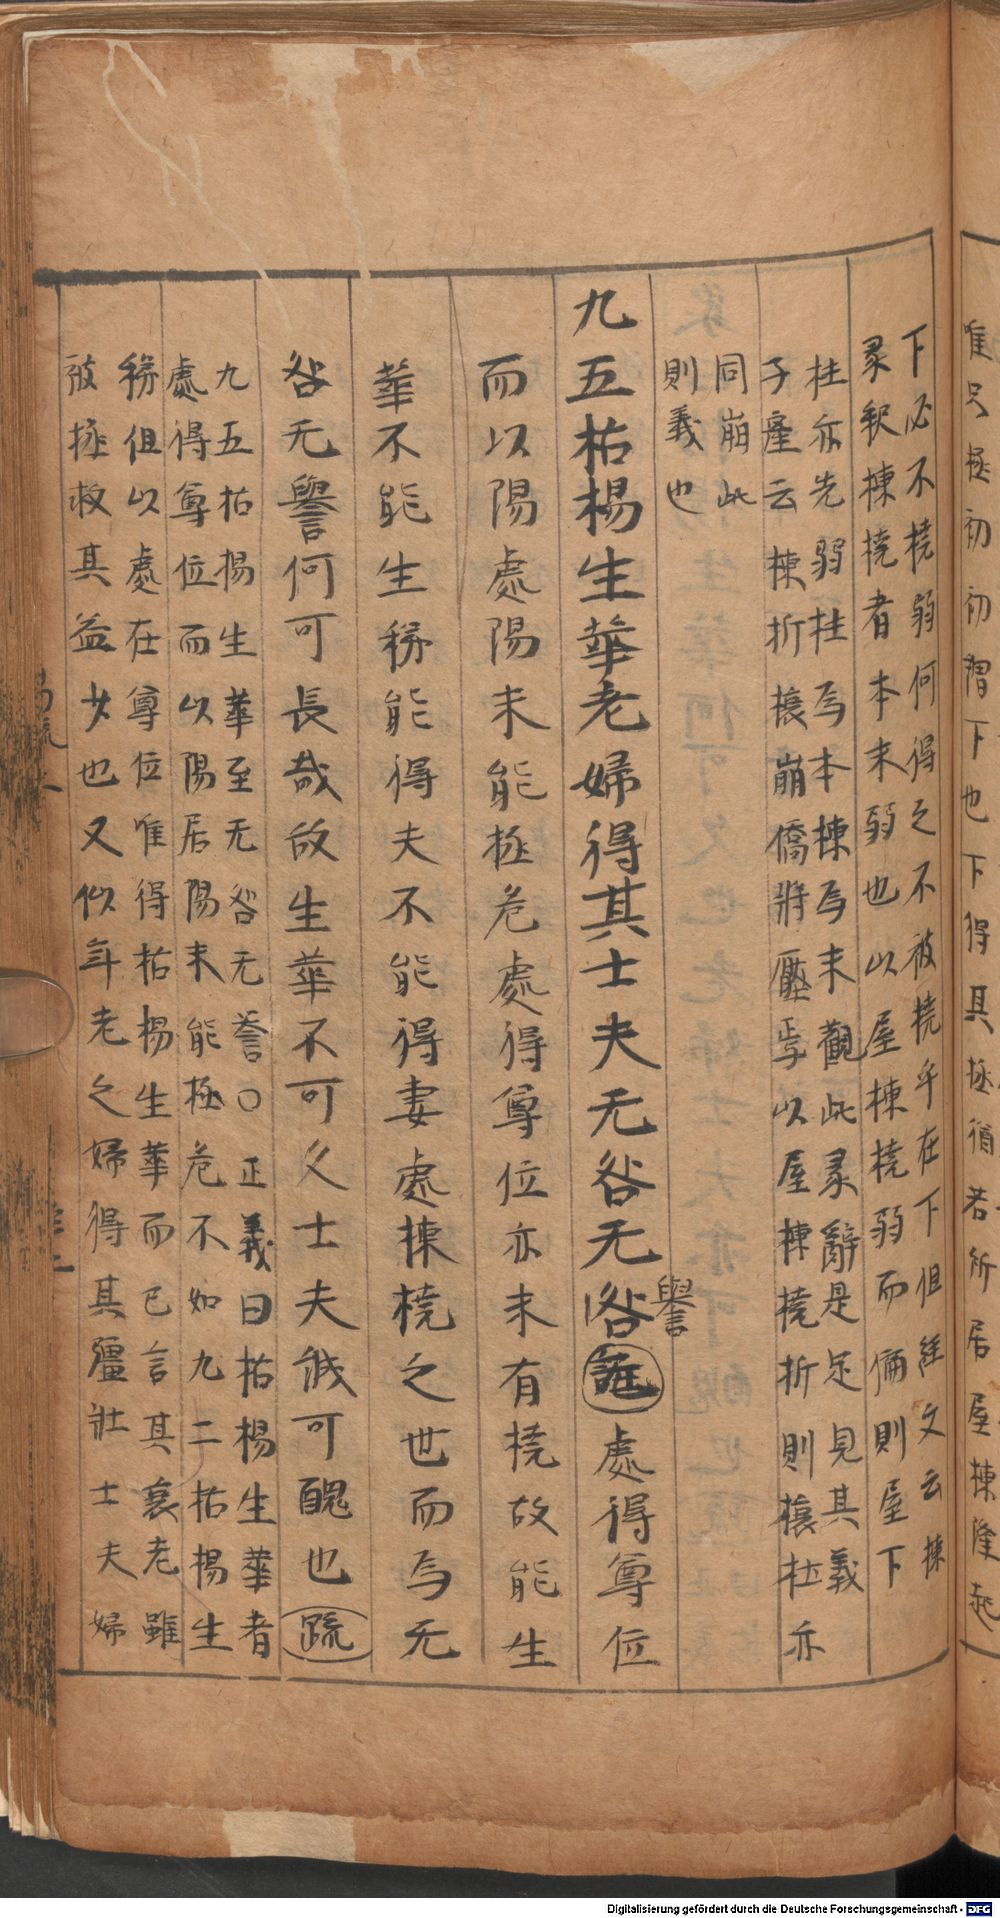 唯只拯初初謂下也下得其拯猶若所居屋棟隆起
下必不橈弱何得之不被橈乎在下但經文云棟
彖釈棟橈者本末弱也以屋棟橈弱而偏則屋下
柱亦先弱柱為本棟為末觀此彖辭是足見其義
子産云棟折榱崩僑將壓焉以屋棟橈折則榱柱亦
同崩此
則義也
九五枯楊生華老婦得其士夫无咎无咎
譽
處得尊位
而以陽處陽未能拯危處得尊位亦未有橈故能生
華不能生稊能得夫不能得妻處棟橈之世而為无
咎无譽何可長哉故生華不可久士夫誠可醜也疏
九五枯楊生華至无咎无誉〇正義曰枯楊生華者
處得尊位而以陽居陽未能拯危不如九二枯楊生
稊但以處在尊位唯得枯楊生華而已言其衰老雖
被拯救其益少也又似年老之婦得其彊壯士夫婦
Digitalisierung gefördert durch die Deutsche Forschungsgemeinschaft - DFG